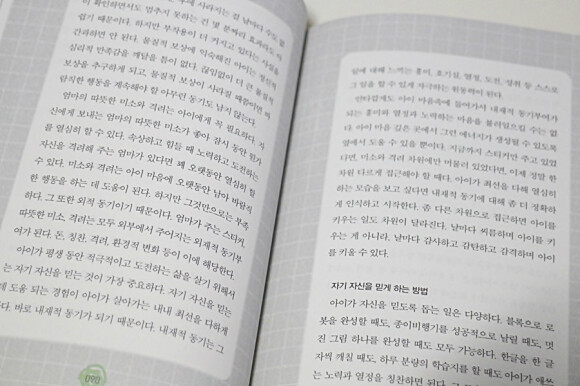 에 사라지는 걸 날마다 수도 없
이 확인하면서도 멈추지 못하는 건 몇 분짜리 효과라도
쉽기 때문이다. 하지만 부작용이 더 커지고 있다는 사실을
간과하면 안 된다. 물질적 보상에 익숙해진 아이는 정신적
심리적 만족감을 깨달을 틈이 없다. 끊임없이 더 큰 물질적
보상을 추구하게 되고, 물질적 보상이 사라질 때쯤이면 바
람직한 행동을 계속해야 할 아무런 동기도 남지 않는다.
엄마의 따뜻한 미소와 격려는 아이에게 꼭 필요하다. 자
신에게 보내는 엄마의 따뜻한 미소가 좋아 잠시 동안 뭔가
를 열심히 할 수 있다. 속상하고 힘들 때 노력하고 도전하는
자신을 격려해 주는 엄마가 있다면 꽤 오랫동안 열심히 할
수 있다. 미소와 격려는 아이 마음에 오랫동안 남아 바람직
한 행동을 하는 데 도움이 된다. 하지만 그것만으로는 부족
하다. 그 또한 외적 동기이기 때문이다. 엄마가 주는 스티커,
따뜻한 미소, 격려는 모두 외부에서 주어지는 외재적 동기부
여가 된다. 돈, 칭찬, 격려, 환경적 변화 등이 이에 해당한다.
아이가 평생 동안 적극적이고 도전하는 삶을 살기 위해서
는 자기 자신을 믿는 것이 가장 중요하다. 자기 자신을 믿는
데 도움 되는 경험이 아이가 살아가는 내내 최선을 다하게
한다. 바로 내재적 동기가 되기 때문이다. 내재적 동기는 그
090
일에 대해 느끼는 흥미, 호기심, 열정, 도전, 성취 등 스스로
그 일을 할 수 있게 자극하는 원동력이 된다.
안타깝게도 아이 마음속에 들어가서 내재적 동기부여가
되는 흥미와 열정과 노력하는 마음을 불러일으킬 수는 없
다. 아이 마음 깊은 곳에서 그런 에너지가 생성될 수 있도록
옆에서 도울 수 있을 뿐이다. 지금까지 스티커만 주고 있었
다면, 미소와 격려 차원에만 머물러 있었다면, 이제 정말 한
차원 다르게 접근해야 할 때다. 아이가 최선을 다해 열심히
하는 모습을 보고 싶다면 내재적 동기에 대해 좀 더 절확하
게 인식하고 시작한다. 좀 다른 차원으로 접근하면 아이를
키우는 일도 차원이 달라진다. 날마다 씨름하며 아이를 키
우는 게 아니라, 날마다 감사하고 감탄하고 감격하며 아이
를 키울 수 있다.
자기 자신을 믿게 하는 방법
아이가 자신을 믿도록 돕는 일은 다양하다. 블록으로 로
봇을 완성할 때도, 종이비행기를 성공적으로 날릴 때도, 멋
진 그림 하나를 완성할 때도 모두 가능하다. 한글을 한 글
자씩 깨칠 때도, 하루 분량의 학습지를 할 때도 아이가 애쓰
는 노력과 열정을 칭찬하면 된다.